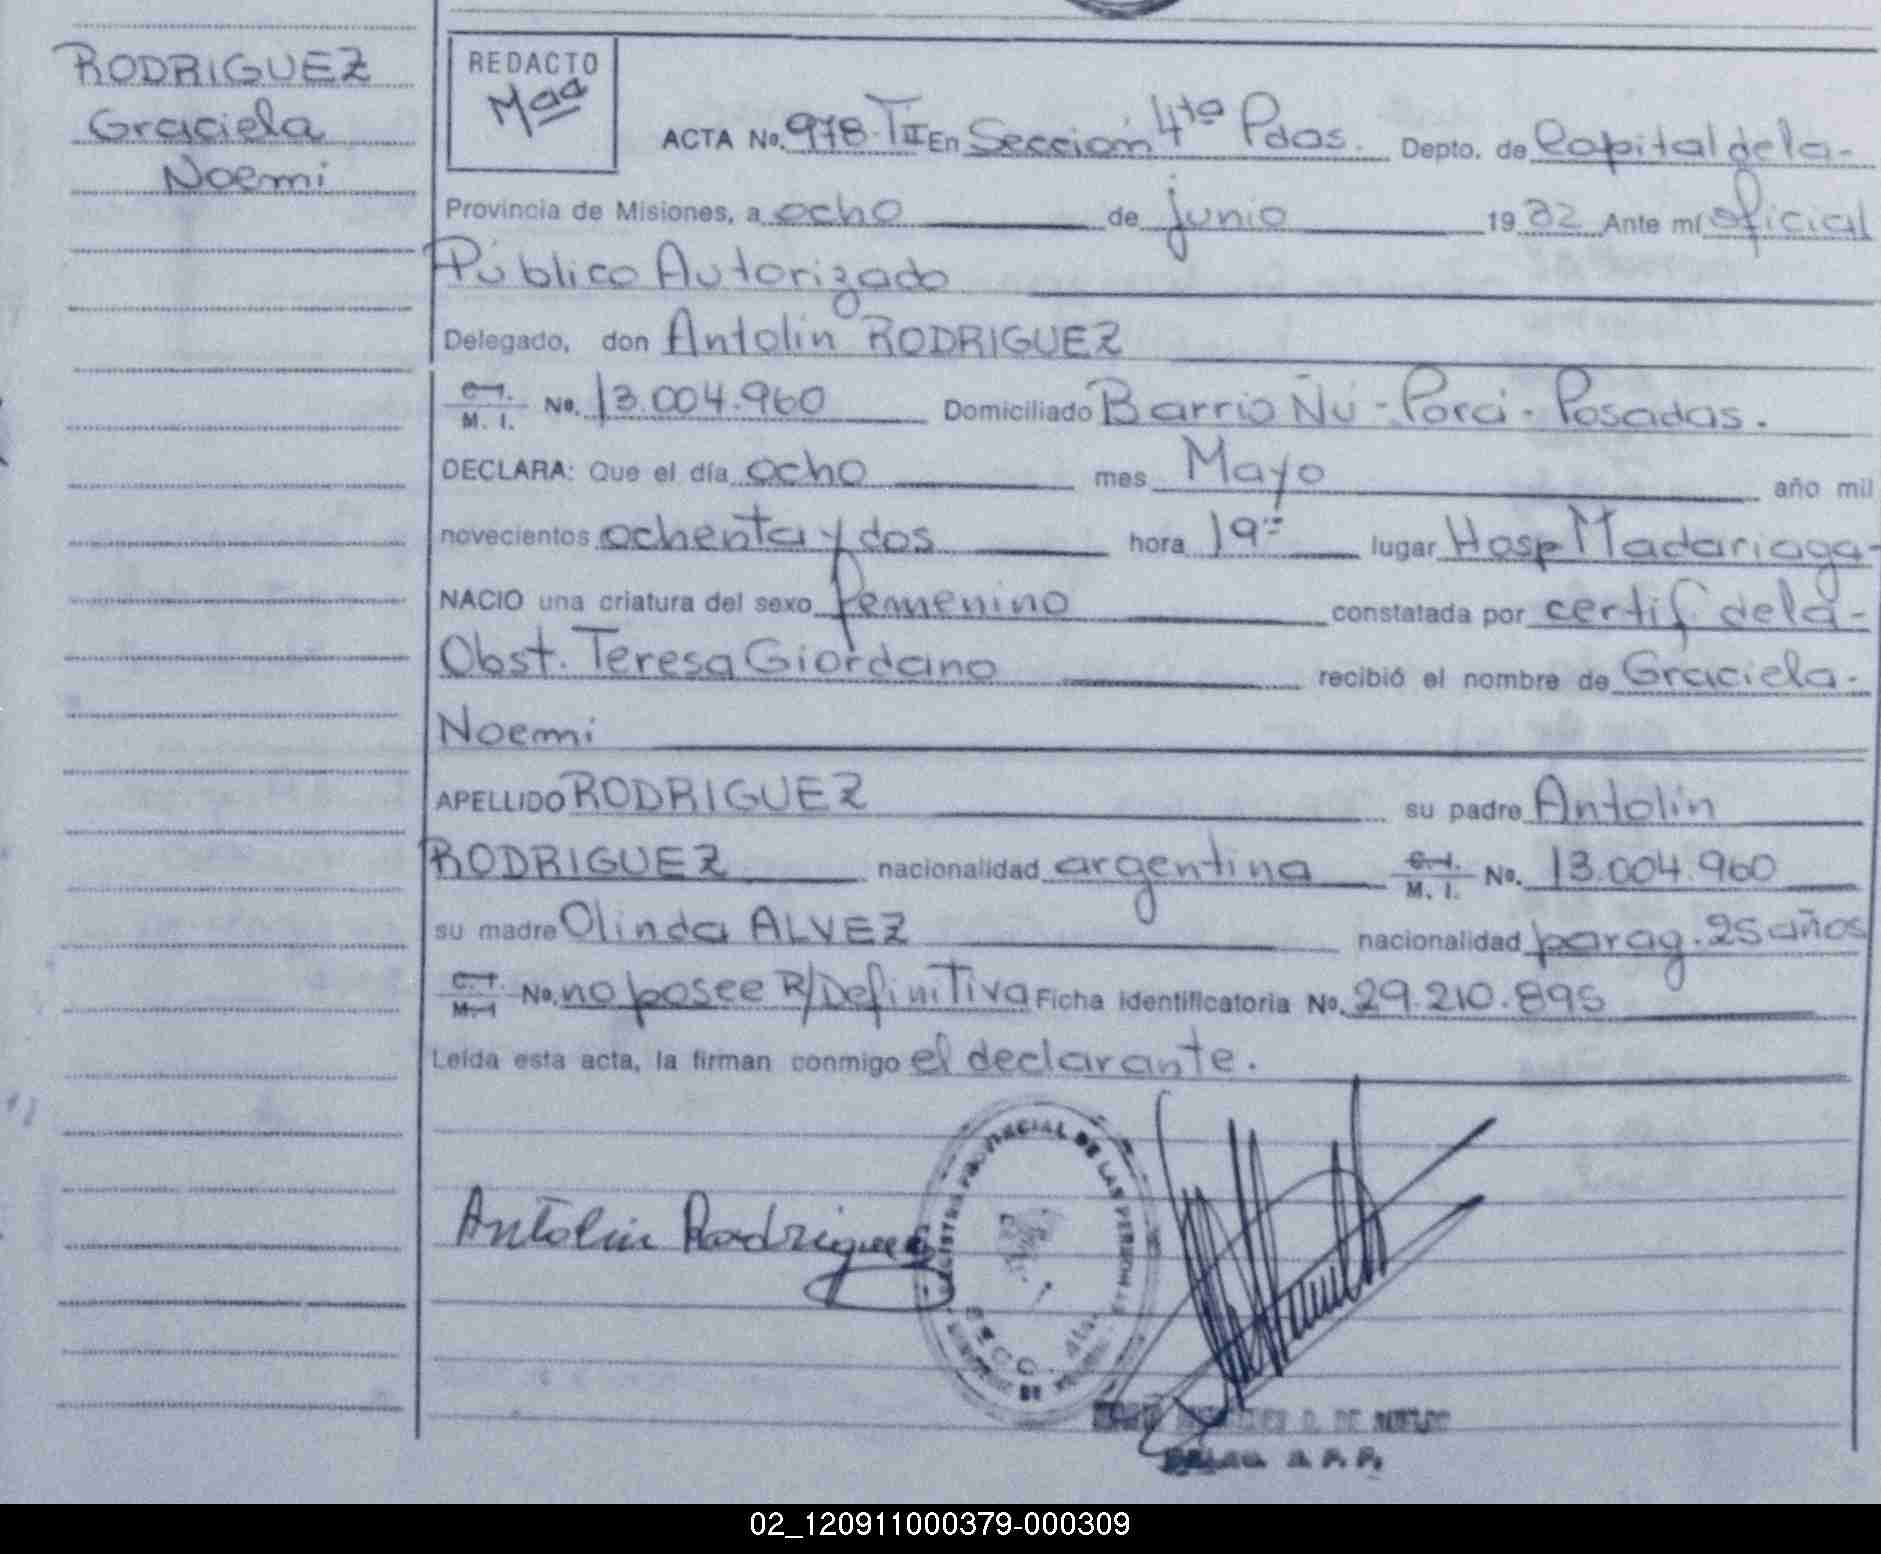 RODRIGUEZ
Graciela
Noemi
REDACTO
ACTA No. 978-TII En Sección 4ta Pdas. Depto. de Capital de la-
Provincia de Misiones, a ocho de junio 1982 Ante mí oficial
Público Autorizado
Delegado, don Antolin RODRIGUEZ
C.I. M.I. No. 13.004.960 Domiciliado Barrio Ñú-Porá-Posadas.
DECLARA: Que el día ocho mes Mayo año mil
novecientos ochenta y dos hora 19 lugar Hosp Madariaga-
NACIO una criatura del sexo femenino constatada por certif. de la-
Obst. Teresa Giordano recibió el nombre de Graciela-
Noemi
APELLIDO RODRIGUEZ su padre Antolín
RODRIGUEZ nacionalidad argentina C.I. M.I. No. 13.004.960
su madre Olinda ALVEZ nacionalidad parag. 25 años
C.I. M.I. No. no posee R/Definitiva Ficha identificatoria No. 29.210.895
Leída esta acta, la firman conmigo el declarante.
Antolin Rodriguez
REGISTRO PROVINCIAL DE LAS PERSONAS
02_120911000379-000309